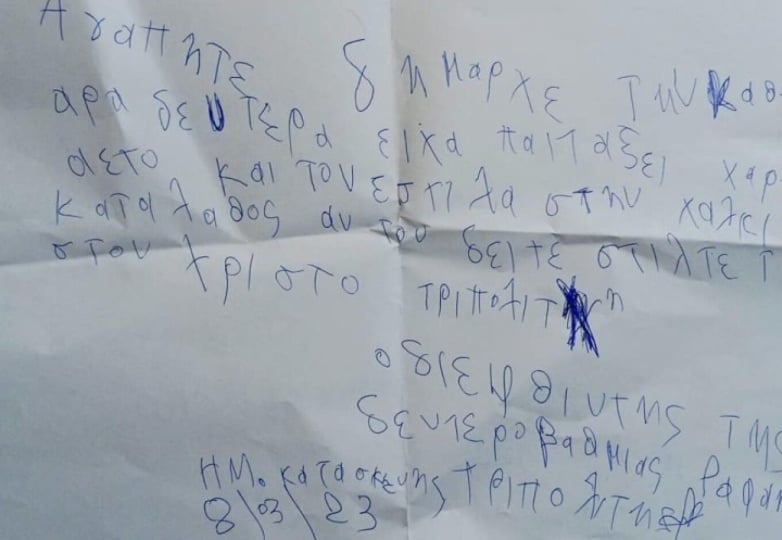 Αγαπητε δημαρχε την καθ
αρα δευτερα ειχα πατταξει χαρ
αετο και τον εστιλα στην χαλκι
καταλαθος αν τον δειτε στιλτε τ
στον χριστο τριπολιτη
ο διεηθιντης της
δευτεροβαθμιας ραφαη
ΗΜ. κατασκευης τριπολιτης
8/03/23